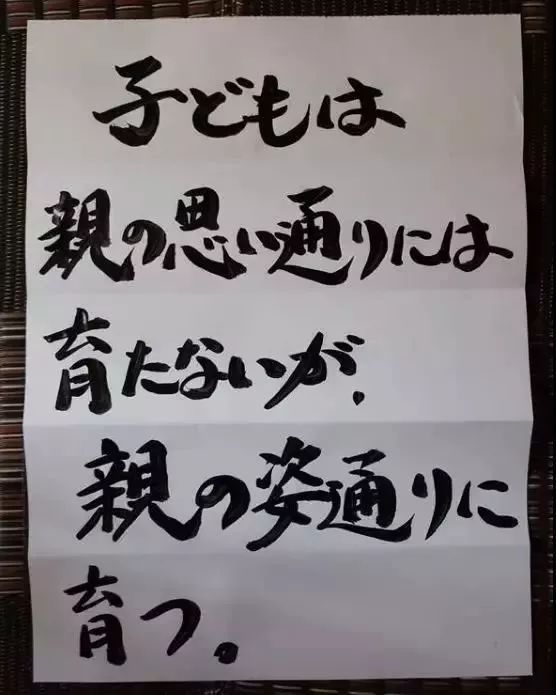 子どもは
親の思い通りには
育たないが、
親の姿通りに
育つ。